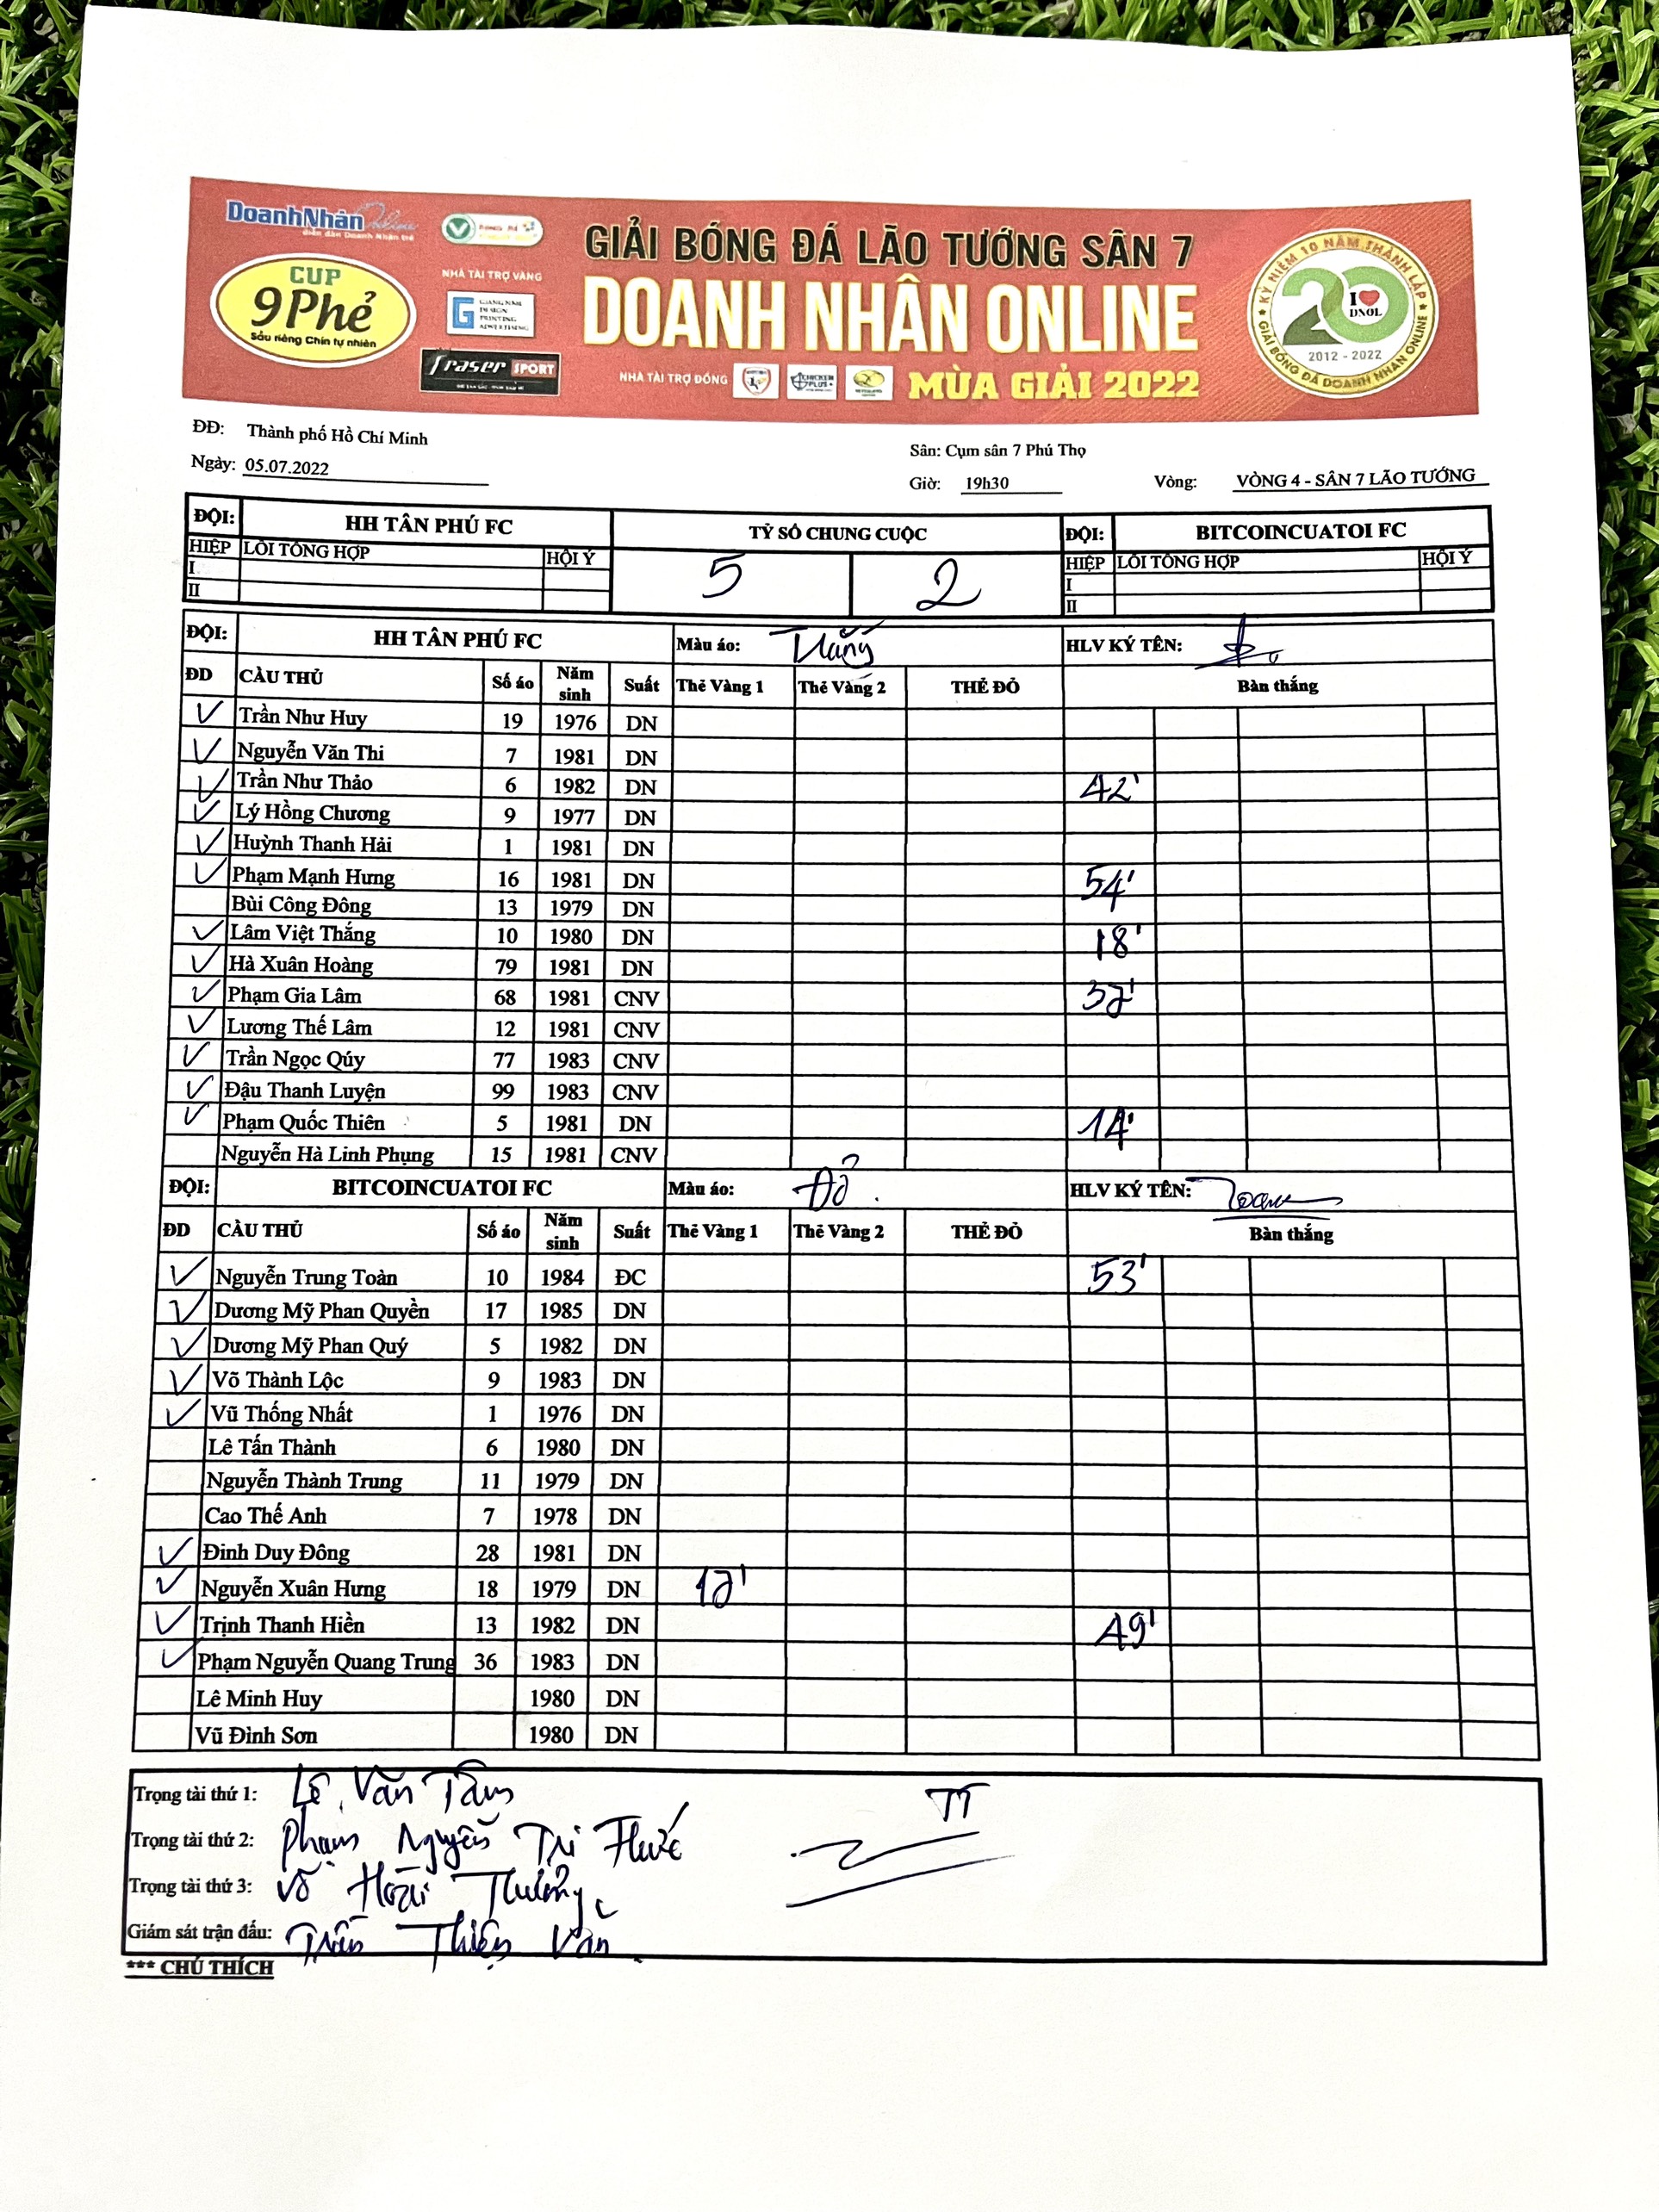 DoanhNhân Online
diễn đàn Doanh Nhân trẻ
CUP
9Phẻ
Sầu riêng Chín tự nhiên
NHÀ TÀI TRỢ VÀNG
fraser SPORT
GIẢI BÓNG ĐÁ LÃO TƯỚNG SÂN 7
DOANH NHÂN ONLINE
NHÀ TÀI TRỢ ĐỒNG
MÙA GIẢI 2022
KỶ NIỆM 10 NĂM THÀNH LẬP
20
I ❤ DNOL
2012 - 2022
GIẢI BÓNG ĐÁ DOANH NHÂN ONLINE
ĐĐ: Thành phố Hồ Chí Minh
Sân: Cụm sân 7 Phú Thọ
Ngày: 05.07.2022
Giờ: 19h30 Vòng: VÒNG 4 - SÂN 7 LÃO TƯỚNG
ĐỘI: HH TÂN PHÚ FC TỶ SỐ CHUNG CUỘC ĐỘI: BITCOINCUATOI FC
HIỆP LỖI TỔNG HỢP HỘI Ý 5 2 HIỆP LỖI TỔNG HỢP HỘI Ý
I I
II II
ĐỘI: HH TÂN PHÚ FC Màu áo: Trắng HLV KÝ TÊN:
ĐD CẦU THỦ Số áo Năm sinh Suất Thẻ Vàng 1 Thẻ Vàng 2 THẺ ĐỎ Bàn thắng
✓ Trần Như Huy 19 1976 DN
✓ Nguyễn Văn Thi 7 1981 DN
✓ Trần Như Thảo 6 1982 DN 42'
✓ Lý Hồng Chương 9 1977 DN
✓ Huỳnh Thanh Hải 1 1981 DN
✓ Phạm Mạnh Hưng 16 1981 DN 54'
Bùi Công Đông 13 1979 DN
✓ Lâm Việt Thắng 10 1980 DN 18'
✓ Hà Xuân Hoàng 79 1981 DN
✓ Phạm Gia Lâm 68 1981 CNV 37'
✓ Lương Thế Lâm 12 1981 CNV
✓ Trần Ngọc Qúy 77 1983 CNV
✓ Đậu Thanh Luyện 99 1983 CNV
✓ Phạm Quốc Thiên 5 1981 DN 14'
Nguyễn Hà Linh Phụng 15 1981 CNV
ĐỘI: BITCOINCUATOI FC Màu áo: Đỏ HLV KÝ TÊN:
ĐD CẦU THỦ Số áo Năm sinh Suất Thẻ Vàng 1 Thẻ Vàng 2 THẺ ĐỎ Bàn thắng
✓ Nguyễn Trung Toàn 10 1984 ĐC 53'
✓ Dương Mỹ Phan Quyền 17 1985 DN
✓ Dương Mỹ Phan Quý 5 1982 DN
✓ Võ Thành Lộc 9 1983 DN
✓ Vũ Thống Nhất 1 1976 DN
Lê Tấn Thành 6 1980 DN
Nguyễn Thành Trung 11 1979 DN
Cao Thế Anh 7 1978 DN
✓ Đinh Duy Đông 28 1981 DN
✓ Nguyễn Xuân Hưng 18 1979 DN 17'
✓ Trịnh Thanh Hiền 13 1982 DN 49'
✓ Phạm Nguyễn Quang Trung 36 1983 DN
Lê Minh Huy 1980 DN
Vũ Đình Sơn 1980 DN
Trọng tài thứ 1: Lê Văn Tâm
Trọng tài thứ 2: Phạm Nguyễn Tri Thức
Trọng tài thứ 3: Võ Hoài Thưởng
Giám sát trận đấu: Trần Thiện Văn
*** CHÚ THÍCH